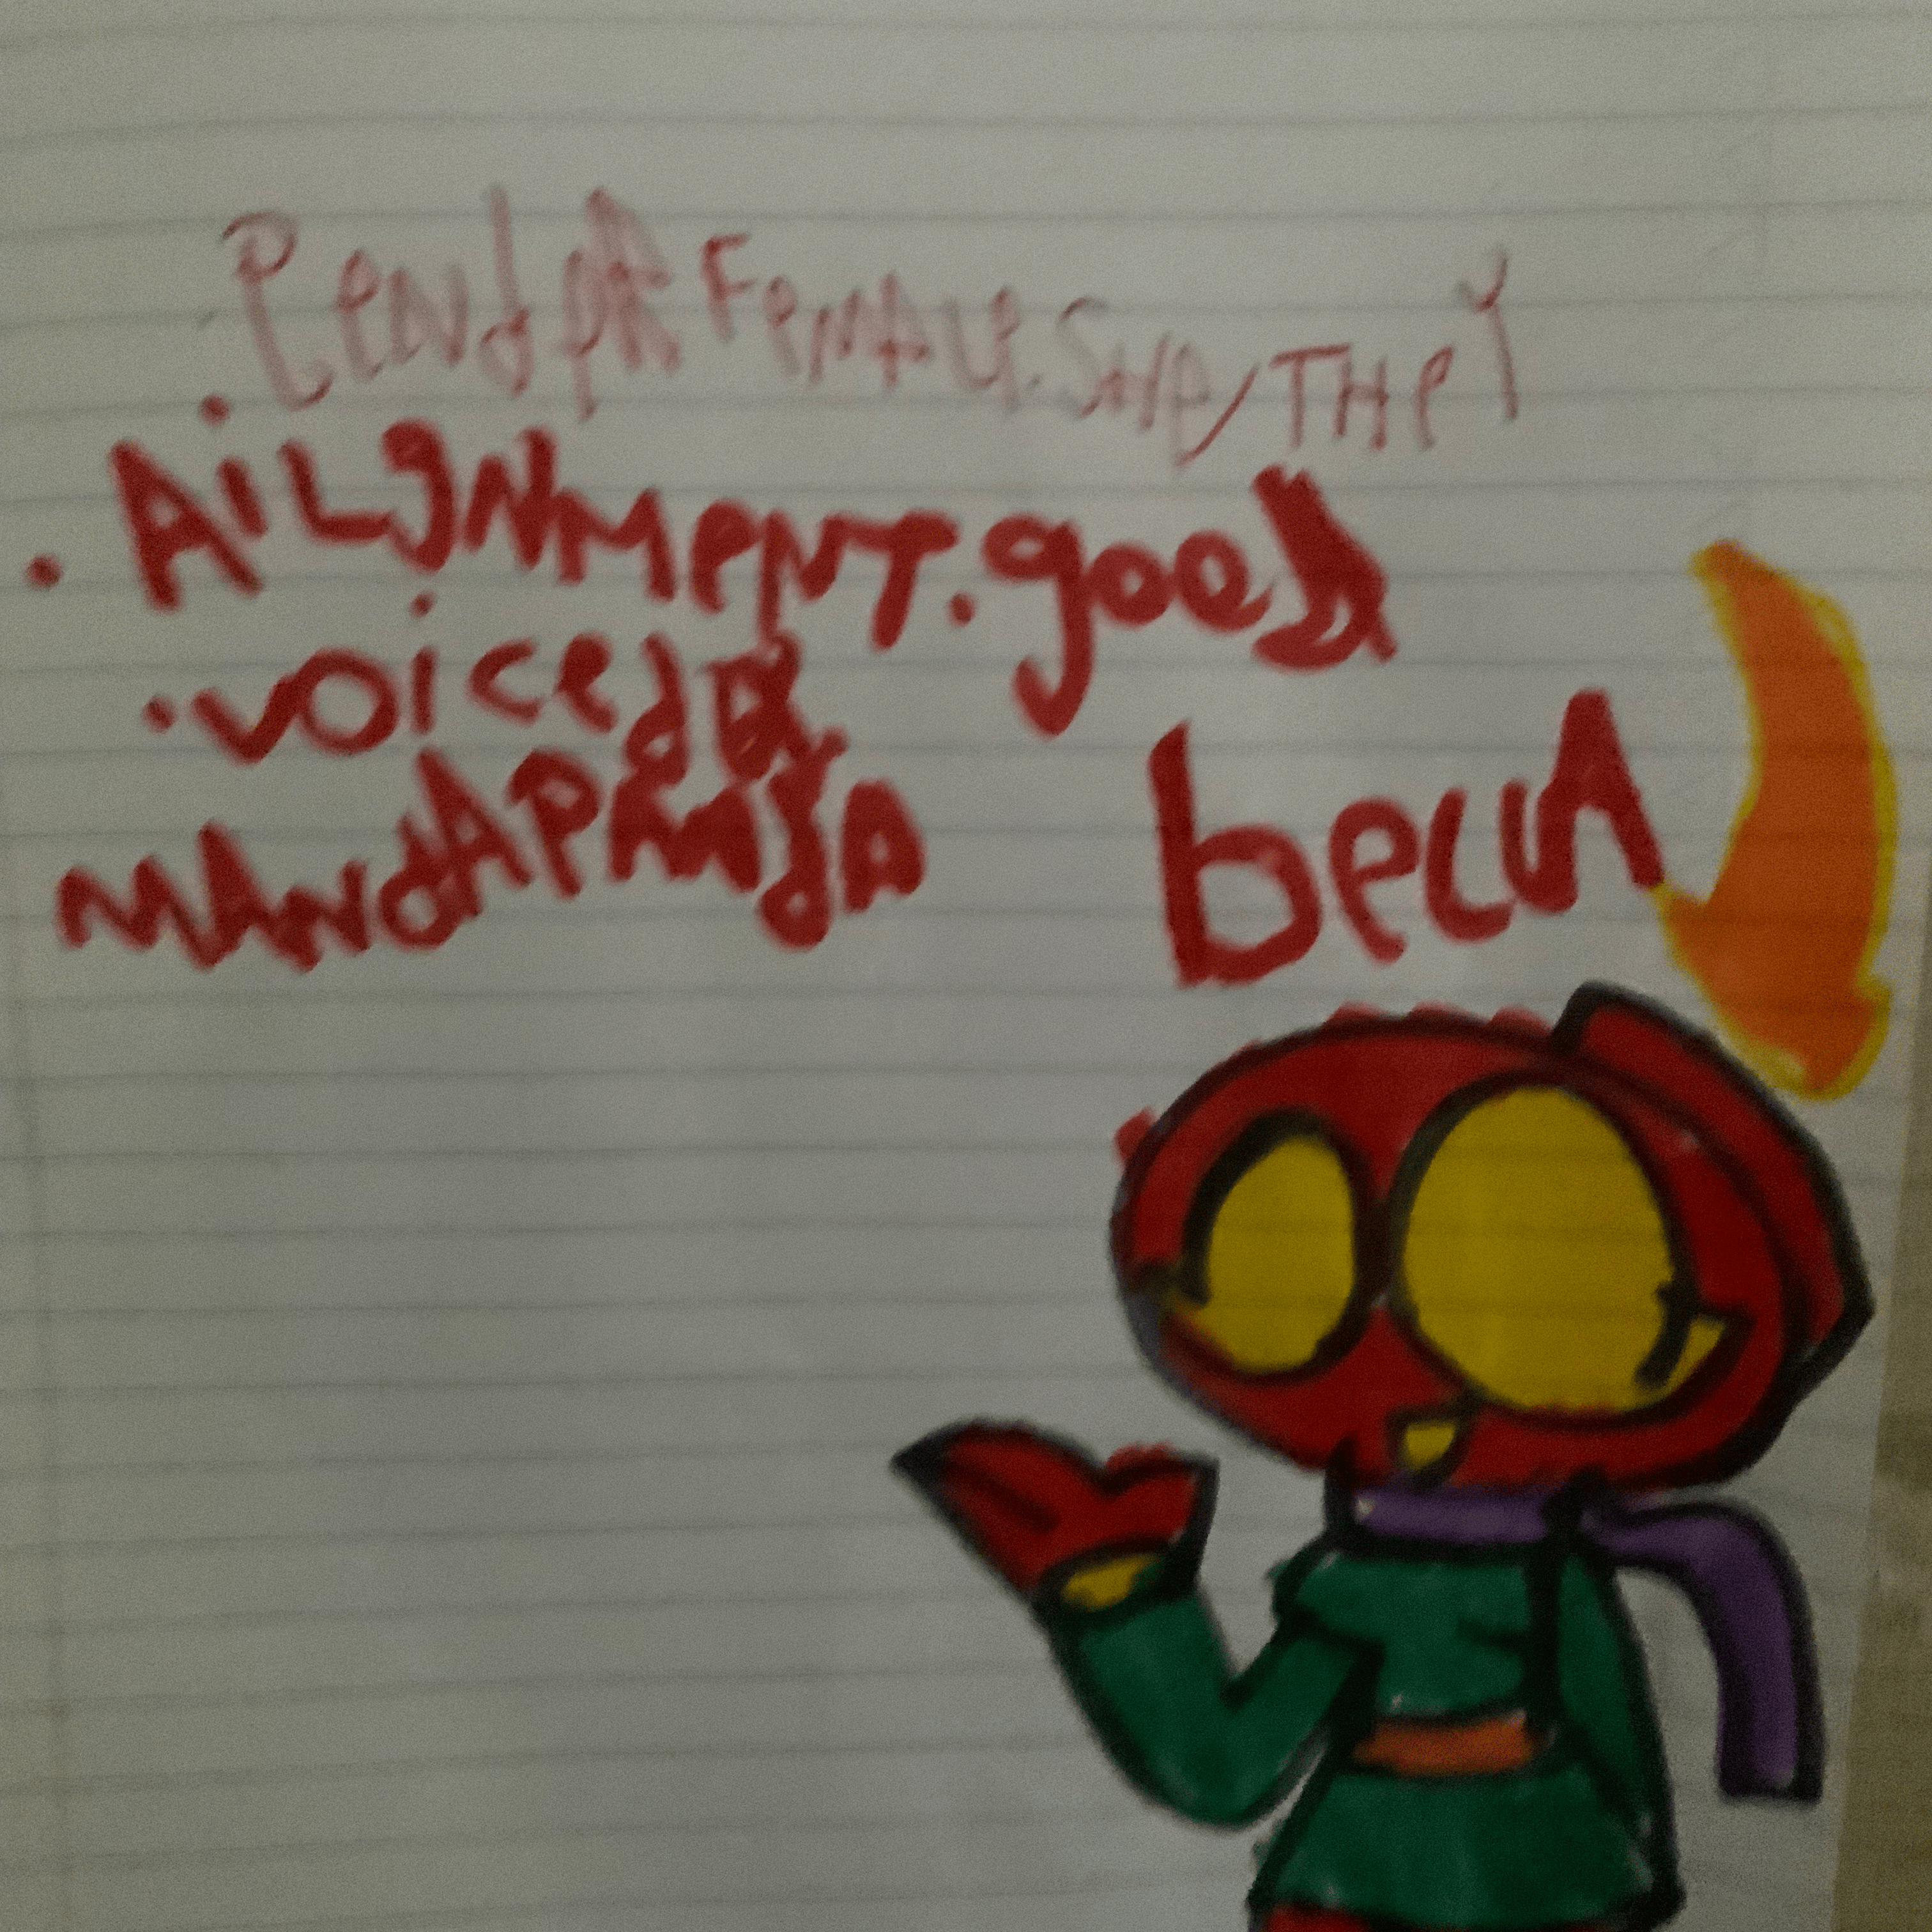 .GENdER FEMALE.SHE/THEY
.AiLgNMENT.good
.voiced By
beUA